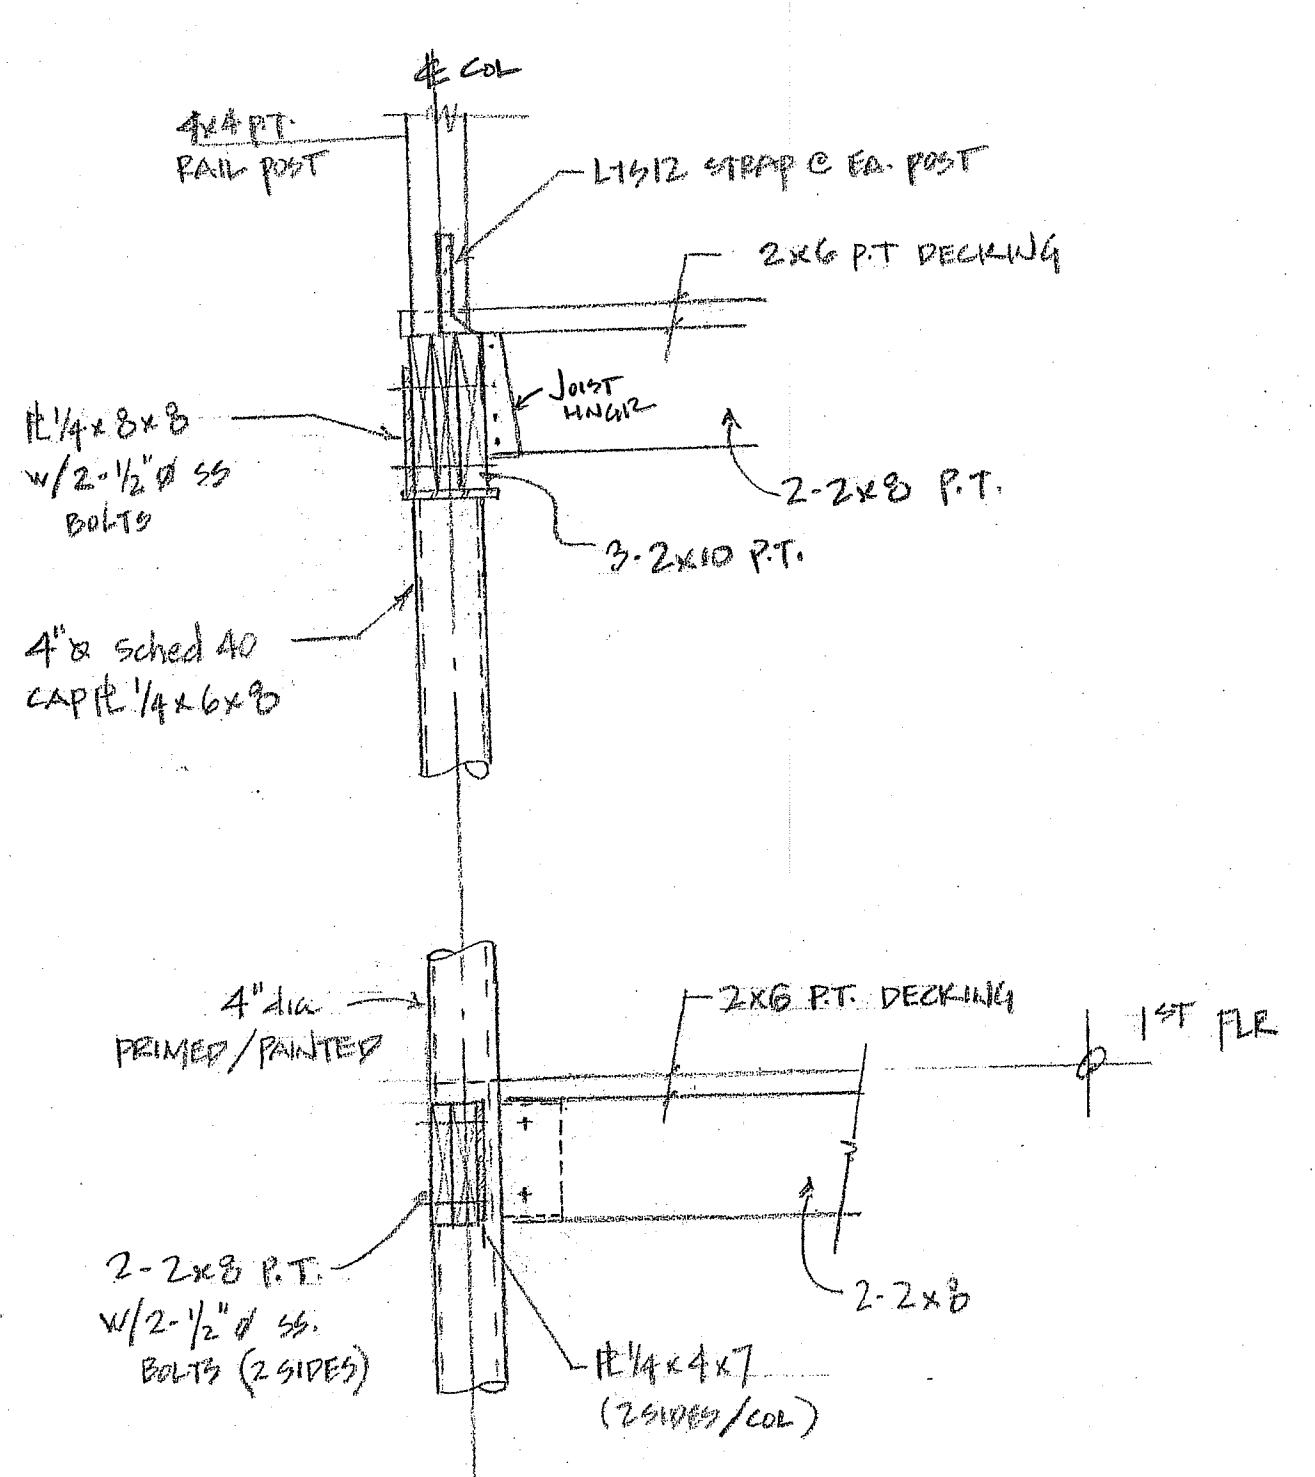 ℄ COL
4x4 P.T.
RAIL POST
LTS12 STRAP @ EA. POST
2x6 P.T DECKING
JOIST
HNGR
℄ 1/4 x 8 x 8
W/2-1/2"Ø SS
BOLTS
2-2x8 P.T.
3-2x10 P.T.
4"Ø Sched 40
CAP ℄ 1/4 x 6 x 8
4" dia
PRIMED/PAINTED
2x6 P.T. DECKING
1ST FLR
2-2x8 P.T.
W/2-1/2"Ø SS.
BOLTS (2 SIDES)
2-2x8
℄ 1/4 x 4 x 7
(2 SIDES/COL)